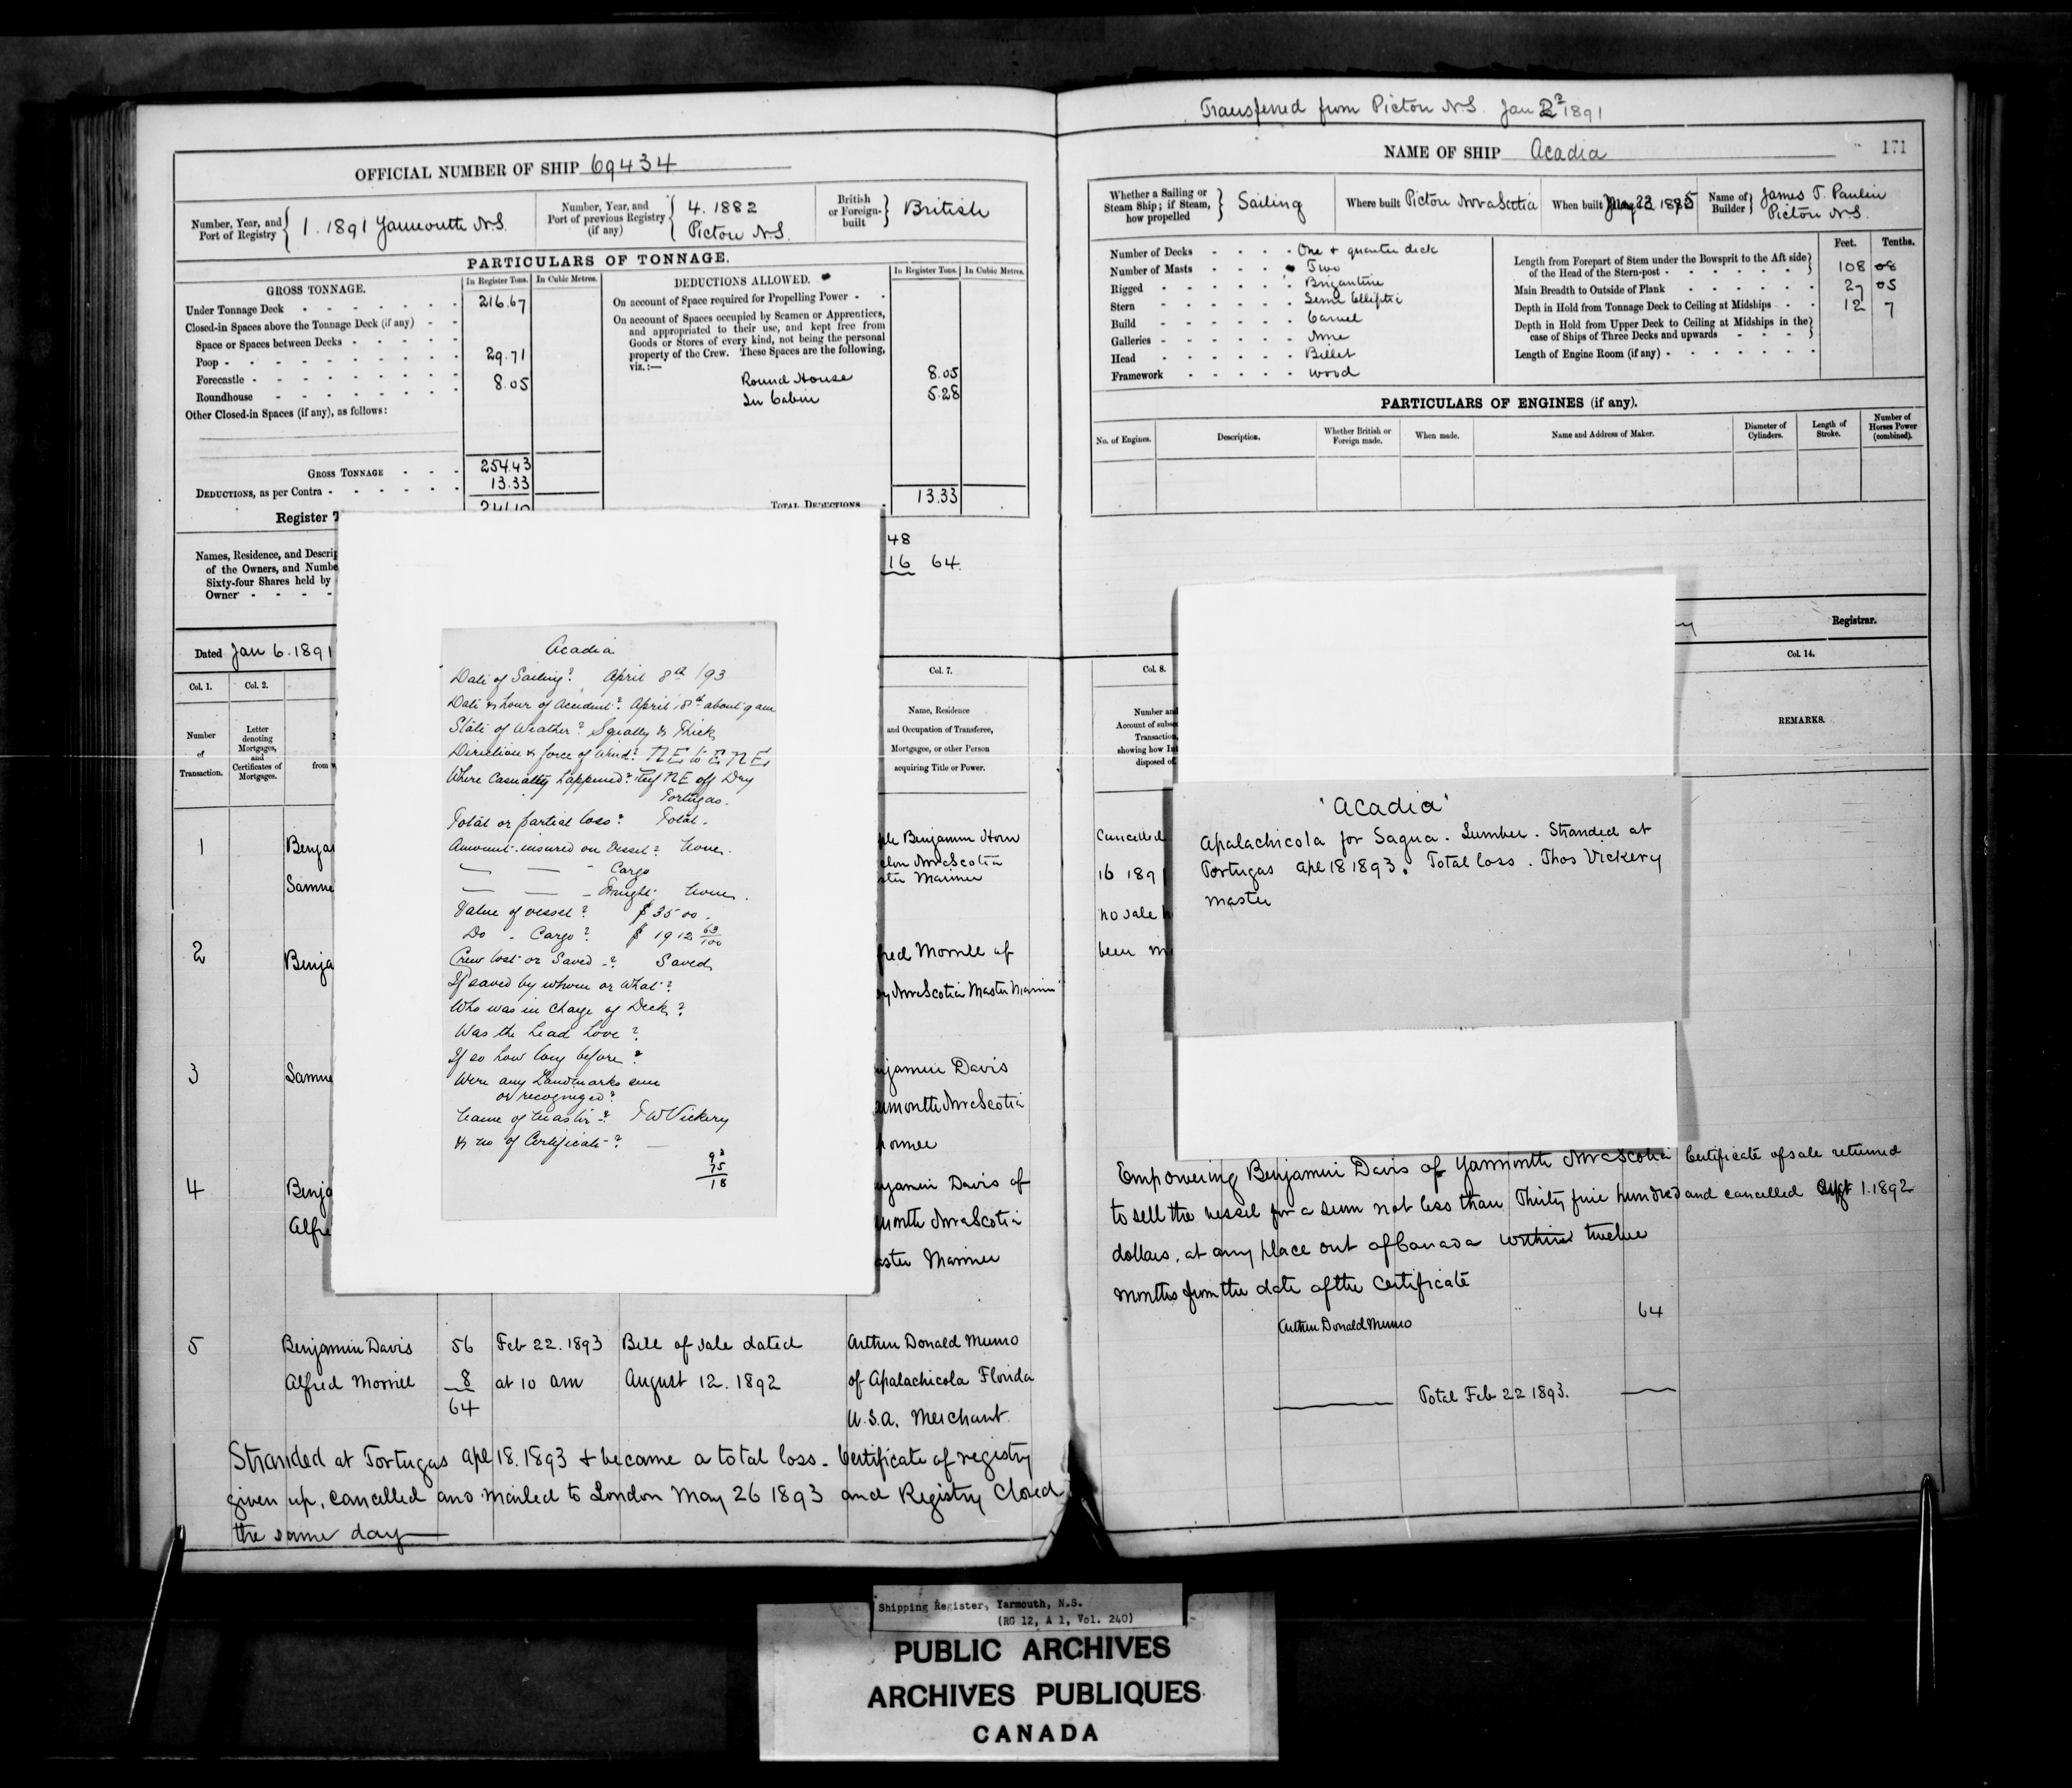 OFFICIAL NUMBER OF SHIP 69434
Number, Year, and Port of Registry
1. 1891 Yarmouth N.S.
Number, Year, and Port of previous Registry (if any)
4. 1882
Picton N.S.
British or Foreign-built
British
PARTICULARS OF TONNAGE.
GROSS TONNAGE.
In Register Tons.
In Cubic Metres.
Under Tonnage Deck 216.67
Closed-in Spaces above the Tonnage Deck (if any)
Space or Spaces between Decks
Poop 29.71
Forecastle
Roundhouse 8.05
Other Closed-in Spaces (if any), as follows:
GROSS TONNAGE 254.43
DEDUCTIONS, as per Contra 13.33
Register
241.10
DEDUCTIONS ALLOWED.
In Register Tons.
In Cubic Metres.
On account of Space required for Propelling Power
On account of Spaces occupied by Seamen or Apprentices,
and appropriated to their use, and kept free from
Goods or Stores of every kind, not being the personal
property of the Crew. These Spaces are the following,
viz.:—
Round House 8.05
In Cabin 5.28
TOTAL DEDUCTIONS 13.33
Names, Residence, and Descrip
of the Owners, and Numbe
Sixty-four Shares held by
Owner
48
16 64.
Dated Jan 6. 1891
Col. 1.
Col. 2.
Col. 7.
Number of Transaction.
Letter denoting Mortgages, and Certificates of Mortgages.
from
Name, Residence
and Occupation of Transferee,
Mortgagee, or other Person
acquiring Title or Power.
1
Benja
Samue
Benjamin Horn
Nova Scotia
Mariner
2
Benja
fred Morrell of
Nova Scotia Master Marin
3
Samue
njamin Davis
rmouth Nova Scotia
4
Benja
Alfre
njamin Davis of
mouth Nova Scotia
aster Mariner
5
Benjamin Davis 56 Feb 22. 1893 Bill of sale dated Arthur Donald Munro
Alfred Morrell 8 at 10 am August 12. 1892 of Apalachicola Florida
64 U.S.A. Merchant.
Stranded at Tortugas Apl 18. 1893 & became a total loss. Certificate of registry
given up, cancelled and mailed to London May 26 1893 and Registry Closed
the same day
Acadia
Date of Sailing? April 8th /93
Date & hour of Accident? April 18th about 9 am
State of Weather? Squally & Thick
Direction & force of Wind? NE to ENE,
Where Casualty happened? Reef NE off Dry
Tortugas.
Total or partial loss? Total.
Amount insured on Vessel? None.
— — Cargo
— — Freight None.
Value of vessel? $3500.
Do - Cargo? $1912 63/100
Crew lost or Saved? Saved
If saved by whom or what?
Who was in charge of Deck?
Was the Lead Hove?
If so how long before?
Were any Landmarks seen
or recognized?
Name of Master? T W Vickery
& no of Certificate? —
93
75
18
Transferred from Picton N.S. Jan 1891
NAME OF SHIP Acadia
171
Whether a Sailing or Steam Ship; if Steam, how propelled
Sailing
Where built Picton Nova Scotia
When built
Name of Builder
James T. Paulin
Picton N.S.
Number of Decks One & quarter deck
Number of Masts Two
Rigged Brigantine
Stern Semi Elliptic
Build Carvel
Galleries None
Head Billet
Framework wood
Feet.
Tenths.
Length from Forepart of Stem under the Bowsprit to the Aft side
of the Head of the Stern-post 108 08
Main Breadth to Outside of Plank 27 05
Depth in Hold from Tonnage Deck to Ceiling at Midships 12 7
Depth in Hold from Upper Deck to Ceiling at Midships in the
case of Ships of Three Decks and upwards
Length of Engine Room (if any)
PARTICULARS OF ENGINES (if any).
No. of Engines.
Description.
Whether British or Foreign made.
When made.
Name and Address of Maker.
Diameter of Cylinders.
Length of Stroke.
Number of Horses Power (combined).
Registrar.
Col. 8.
Col. 14.
Number an
Account of subse
Transaction
showing how In
disposed of
REMARKS.
Cancelled
16 1891
no sale h
been m
'Acadia'
Apalachicola for Sagua. Lumber. Stranded at
Tortugas Apl 18 1893. Total loss. Thos Vickery
master
Empowering Benjamin Davis of Yarmouth Nova Scotia
to sell the vessel for a sum not less than Thirty five hundred
dollars, at any place out of Canada within twelve
months from the date of the certificate
Certificate of sale returned
and cancelled Sept 1. 1892
Arthur Donald Munro 64
Total Feb 22 1893.
Shipping Register, Yarmouth, N.S.
(RG 12, A 1, Vol. 240)
PUBLIC ARCHIVES
ARCHIVES PUBLIQUES
CANADA